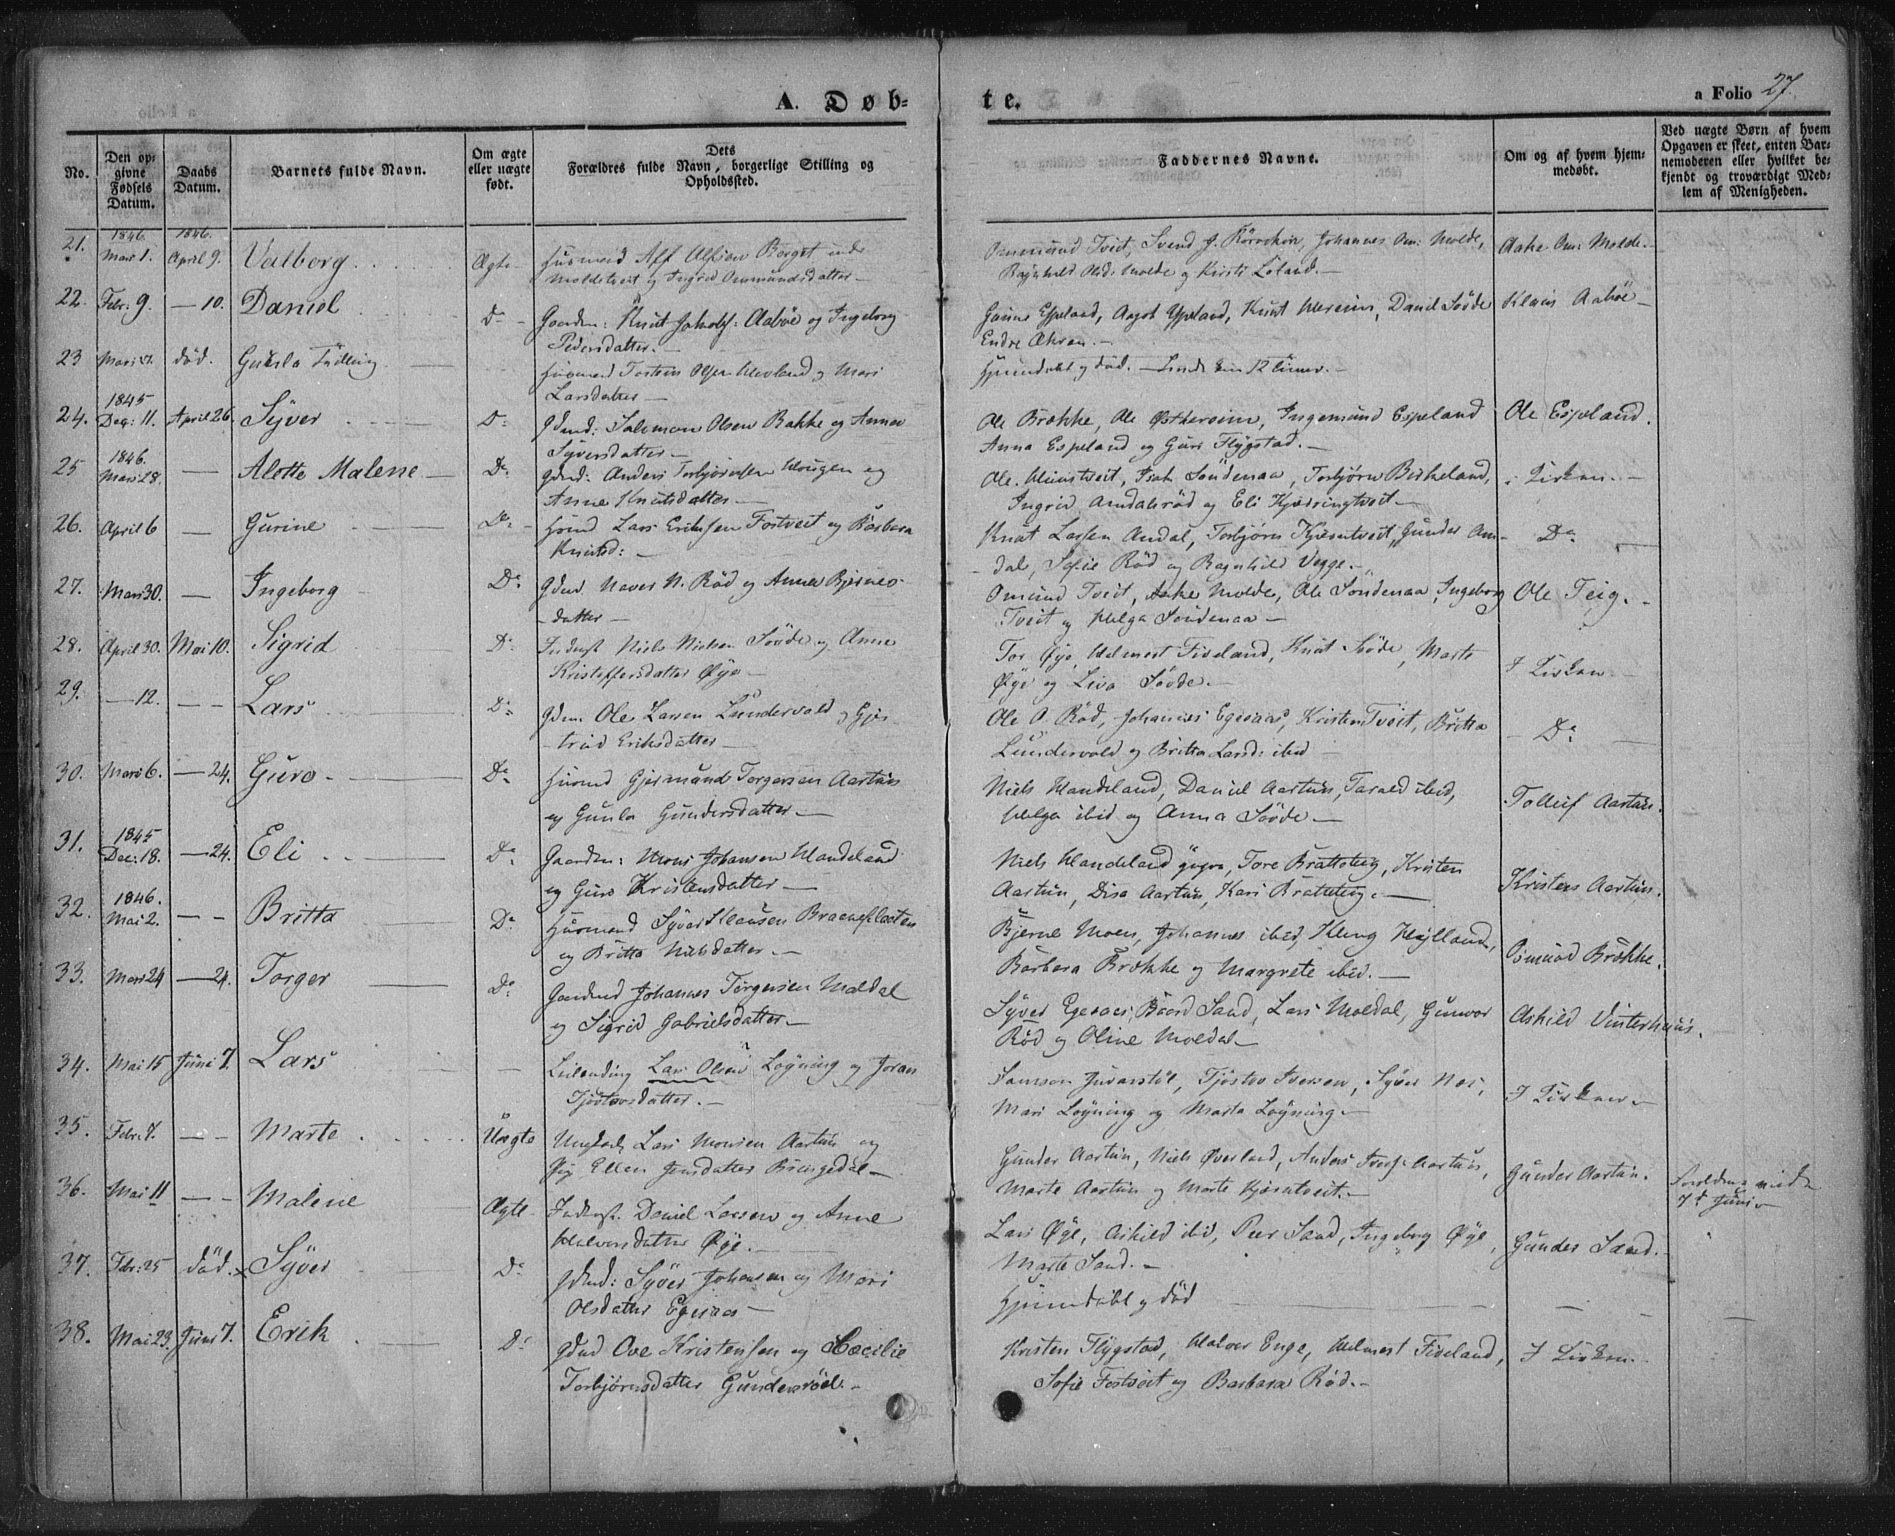 A. Døb=
te.
a Folio 27.
No.
Den op=
givne
Fødsels
Datum.
Daabs
Datum.
Barnets fulde Navn.
Om ægte
eller uægte
født.
Dets
Forældres fulde Navn, borgerlige Stilling og
Opholdssted.
Faddernes Navne.
Om og af hvem hjem=
medøbt.
Ved uægte Børn af hvem
Opgaven er skeet, enten Bar=
nemoderen eller hvilket be=
kjendt og troværdigt Med=
lem af Menigheden.
21. 1846. Mars 1. 1846. April 9. Valborg Ægte
og Ingrid Ommundsdatter
Ommund Tveit, Svend Johannes Om: Molde,
Molde og Kirsti Løland.
Aake Om: Molde
22. Febr. 9. — 10. Daniel Do
Gaardm: Knut Aabøe og Ingeborg
Pedersdatter.
Espeland, Aagot Espeland, Knut Daniel Søvde
Endre
Klaus Aabøe
23 død.
Husmand Torsten Olsen og Mari
Larsdatter
Hjemdøbt og død. 12 timer.
24. 1845 Dec: 11. April 26. Syver Do
Gdmd: Salemon Olsen Bakke og Anna
Syversdatter
Ole Brække, Ole Østhereim, Ingemund Espeland
Anna Espeland og Guri Flygstad.
Ole Espeland.
25 1846. Mars 28. — Alette Malene Do
Gdmd: Anders Torbjørnsen Hougen og
Anne Knutsdatter
Ole Munstveit, Isak Søndenaa, Torbjørn Birkeland,
Ingrid Amdalsrød og Eli Kjedringtveit
i Kirken.
26. April 6 — Gurine Do
Husmd Lars Eriksen Fostveit og Barbara
Knutsd:
Knut Larsen Amdal, Torbjørn Kjørntveit, Gunder Am-
dal, Sofie Rød og Ragnhild Vegge.
Do
27. Mars 30. — Ingeborg Do
Gdmd N. Rød og Anna Bjernes-
datter
Omund Tveit, Aake Molde, Ole Søndenaa, Ingeborg
Tveit og Helga Søndenaa
Ole Teig.
28. April 30. Mai 10. Sigrid Do
Inderst Niels Nielsen Søvde og Anne
Kristoffersdatter Øye
Tor Øye, Helmert Fiveland, Knut Søvde, Marte
Øye og Liva Søvde.
I Kirken
29. — 12. — - Lars Do
Gdm. Ole Larsen Lundevold og Gjer-
trud Eriksdatter
Ole O. Rød, Johannes Egesaas, Kristen Tveit, Britta
Lundevold og Britta Larsd: ibid
Do
30. Mars 6. — 24. Guro Do
Husmd Gjermund Torgersen Aartun
og Gunla Gundersdatter
Niels Handeland, Daniel Aartun, Tarald ibid,
Helga ibid og Anna Søvde
Tolleif Aartun.
31. 1845 Dec: 18. — 24. Eli Do
Gaardm: Mons Johansen Handeland
og Guro Kristensdatter
Niels Handeland Tore Bratteteig, Kristen
Aartun, Disa Aartun, Kari Bratteteig.
Kristen Aartun.
32. 1846. Mai 2. — - Britta Do
Husmand Syver Klausen Braaneflaaten
og Britta Nilsdatter.
Bjerne Moen, Johannes ibid, Kleng Høylland,
Barbara Brække og Margrete ibid.
Osmund Brække.
33. Mars 24 — 24. Torger Do
Gaardmd Johannes Torgersen Moldal
og Sigrid Gabrielsdatter
Syver Egesaas, Baard Sand, Lars Moldal, Gunvor
Rød og Oline Moldal
Askild Vinterhuus.
34. Mai 15 Juni 7. Lars —
Leilending Lars Olsen Løyning og Joran
Tjøstovsdatter.
Samson Juvarstøl, Tjøstov Iversen, Syver Nes,
Mari Løyning og Marta Løyning
I Kirken
35. Febr. 7. — - Marte Uægte
Ungkarl Lars Monsen Aartun og
Pig Ellen Jensdatter Bringedal
Gunder Aartun, Niels Øverland, Anders Iversen Aartun,
Marte Aartun og Marte Kjørntveit.
Gunder Aartun.
Forældrene
7d Juni
36. Mai 11 — - Malene Ægte
Inderst. Daniel Larsen og Anne
Halvorsdatter Øye.
Lars Øye, Askild ibid, Peer Sand, Ingeborg Øye,
Marte Sand.
Gunder Sand.
37. Febr: 25 død. Syver Do
Gdmd: Syver Johansen og Mari
Olsdatter Egesaas
Hjemdøbt og død
38. Mai 23. Juni 7. Erik Do
Gdmd Ove Kristensen og Cecilie
Torbjørnsdatter Gundersrød.
Kristen Flygstad, Halvor Enge, Helmert Fiveland,
Sofie Fostveit og Barbara Rød.
I Kirken.